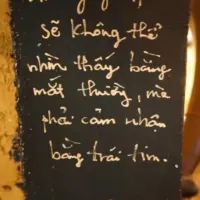 sẽ không thể
nhìn thấy bằng
mắt thường, mà
phải cảm nhận
bằng trái tim.